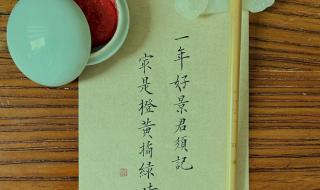 一年好景君須記
㝡是橙黃橘綠